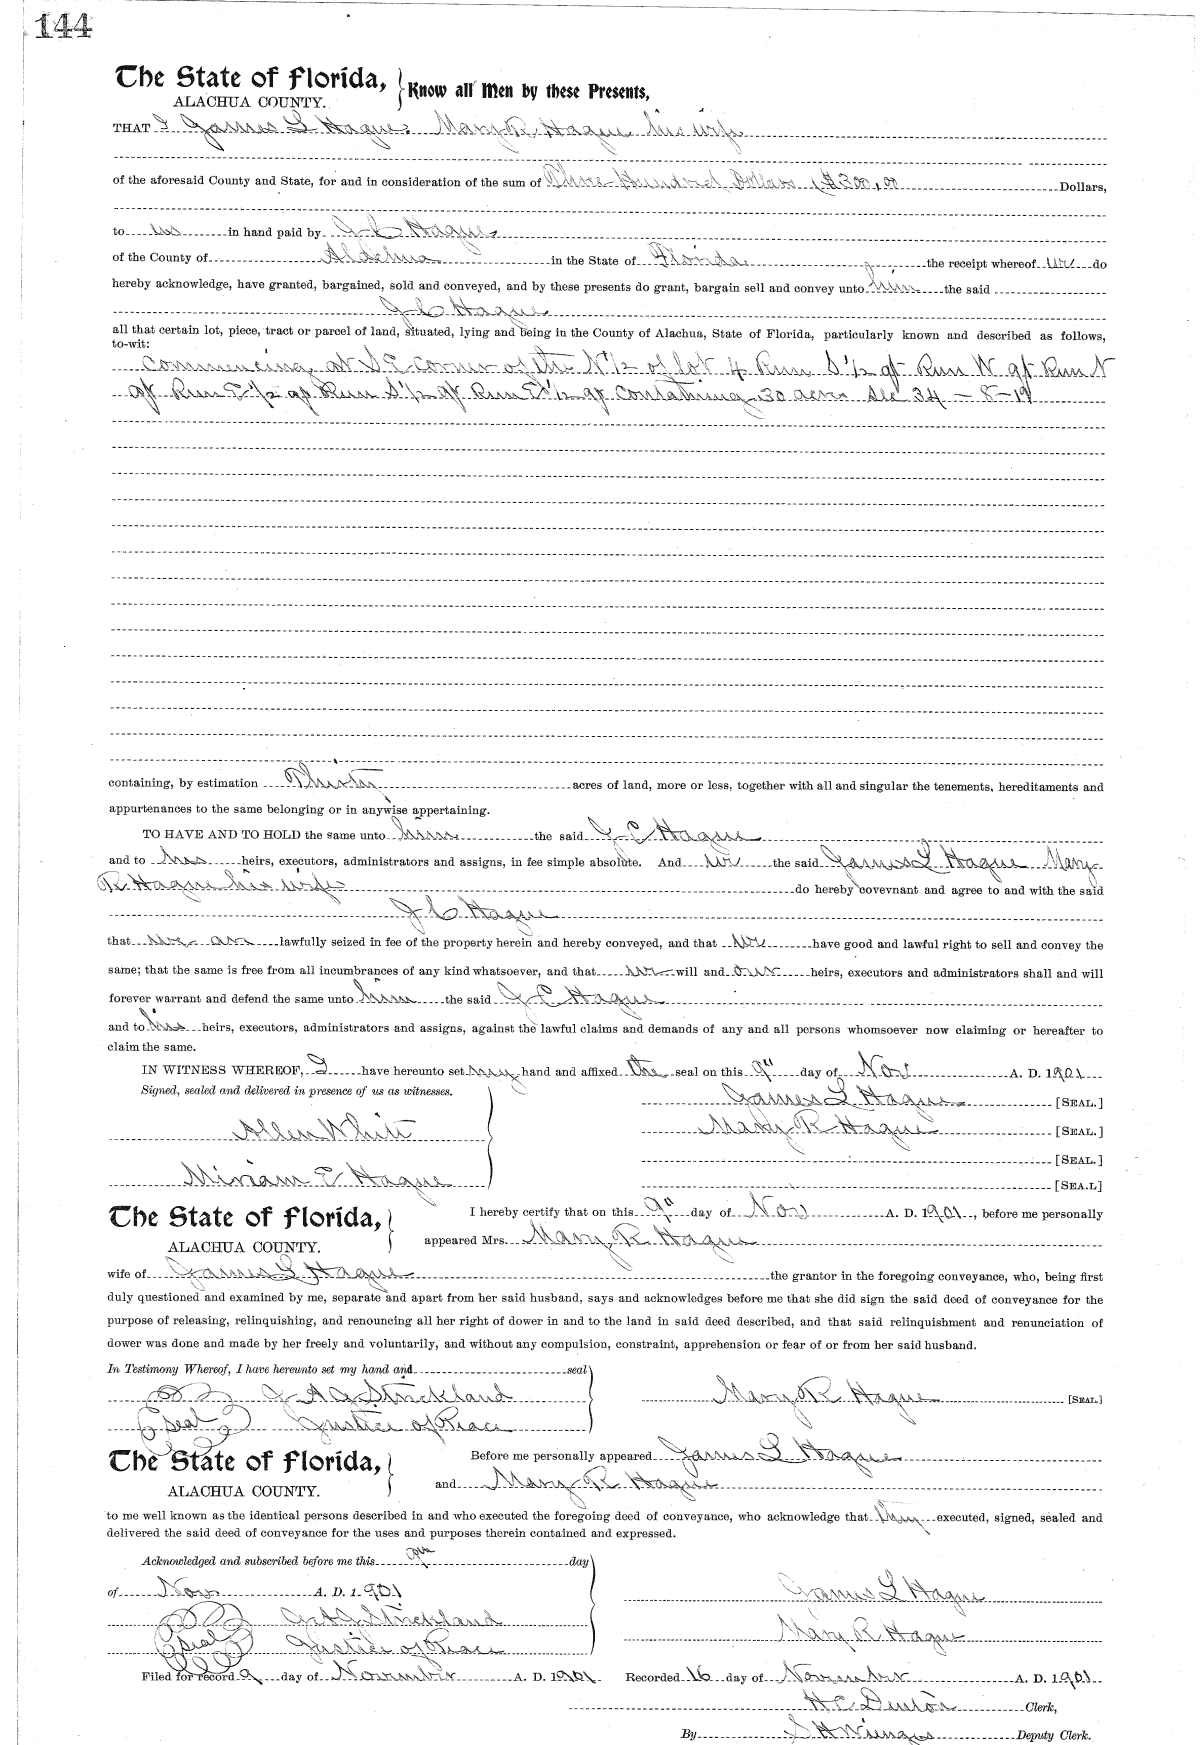 144
The State of Florida, Know all Men by these Presents,
ALACHUA COUNTY.
THAT I James L Hague Mary R. Hague his wife
of the aforesaid County and State, for and in consideration of the sum of Three Hundred Dollars ($300.00 Dollars,
to us in hand paid by J C Hague
of the County of Alachua in the State of Florida the receipt whereof we do
hereby acknowledge, have granted, bargained, sold and conveyed, and by these presents do grant, bargain sell and convey unto him the said
J C Hague
all that certain lot, piece, tract or parcel of land, situated, lying and being in the County of Alachua, State of Florida, particularly known and described as follows,
to-wit:
Commencing at S E corner of the N 1/2 of lot 4 Run S 1/2 qr Run W qr Run N
qr Run E 1/2 qr Run S 1/2 qr Run E 1/2 qr containing 30 acres Sec 34 - 8 - 19
containing, by estimation Thirty acres of land, more or less, together with all and singular the tenements, hereditaments and
appurtenances to the same belonging or in anywise appertaining.
TO HAVE AND TO HOLD the same unto him the said J C Hague
and to his heirs, executors, administrators and assigns, in fee simple absolute. And we the said James L Hague Mary
R Hague his wife do hereby covevnant and agree to and with the said
J C Hague
that we are lawfully seized in fee of the property herein and hereby conveyed, and that we have good and lawful right to sell and convey the
same; that the same is free from all incumbrances of any kind whatsoever, and that we will and our heirs, executors and administrators shall and will
forever warrant and defend the same unto him the said J C Hague
and to his heirs, executors, administrators and assigns, against the lawful claims and demands of any and all persons whomsoever now claiming or hereafter to
claim the same.
IN WITNESS WHEREOF, I have hereunto set my hand and affixed the seal on this 9" day of Nov A. D. 1901
Signed, sealed and delivered in presence of us as witnesses. James L Hague [SEAL.]
Allen White Mary R Hague [SEAL.]
[SEAL.]
Miriam E Hague [SEA.L]
The State of Florida, I hereby certify that on this 9" day of Nov A. D. 1901, before me personally
ALACHUA COUNTY. appeared Mrs. Mary R Hague
wife of James L Hague the grantor in the foregoing conveyance, who, being first
duly questioned and examined by me, separate and apart from her said husband, says and acknowledges before me that she did sign the said deed of conveyance for the
purpose of releasing, relinquishing, and renouncing all her right of dower in and to the land in said deed described, and that said relinquishment and renunciation of
dower was done and made by her freely and voluntarily, and without any compulsion, constraint, apprehension or fear of or from her said husband.
In Testimony Whereof, I have hereunto set my hand and seal
J A G Strickland Mary R Hague [SEAL]
seal Justice of Peace
The State of Florida, Before me personally appeared James L Hague
ALACHUA COUNTY. and Mary R Hague
to me well known as the identical persons described in and who executed the foregoing deed of conveyance, who acknowledge that they executed, signed, sealed and
delivered the said deed of conveyance for the uses and purposes therein contained and expressed.
Acknowledged and subscribed before me this 9th day
of Nov A. D. 1901 James L Hague
J A G Strickland
seal Justice of Peace Mary R Hague
Filed for record 9 day of November A. D. 1901 Recorded 16 day of November A. D. 1901
H C Denton Clerk,
By S H Wienges Deputy Clerk.